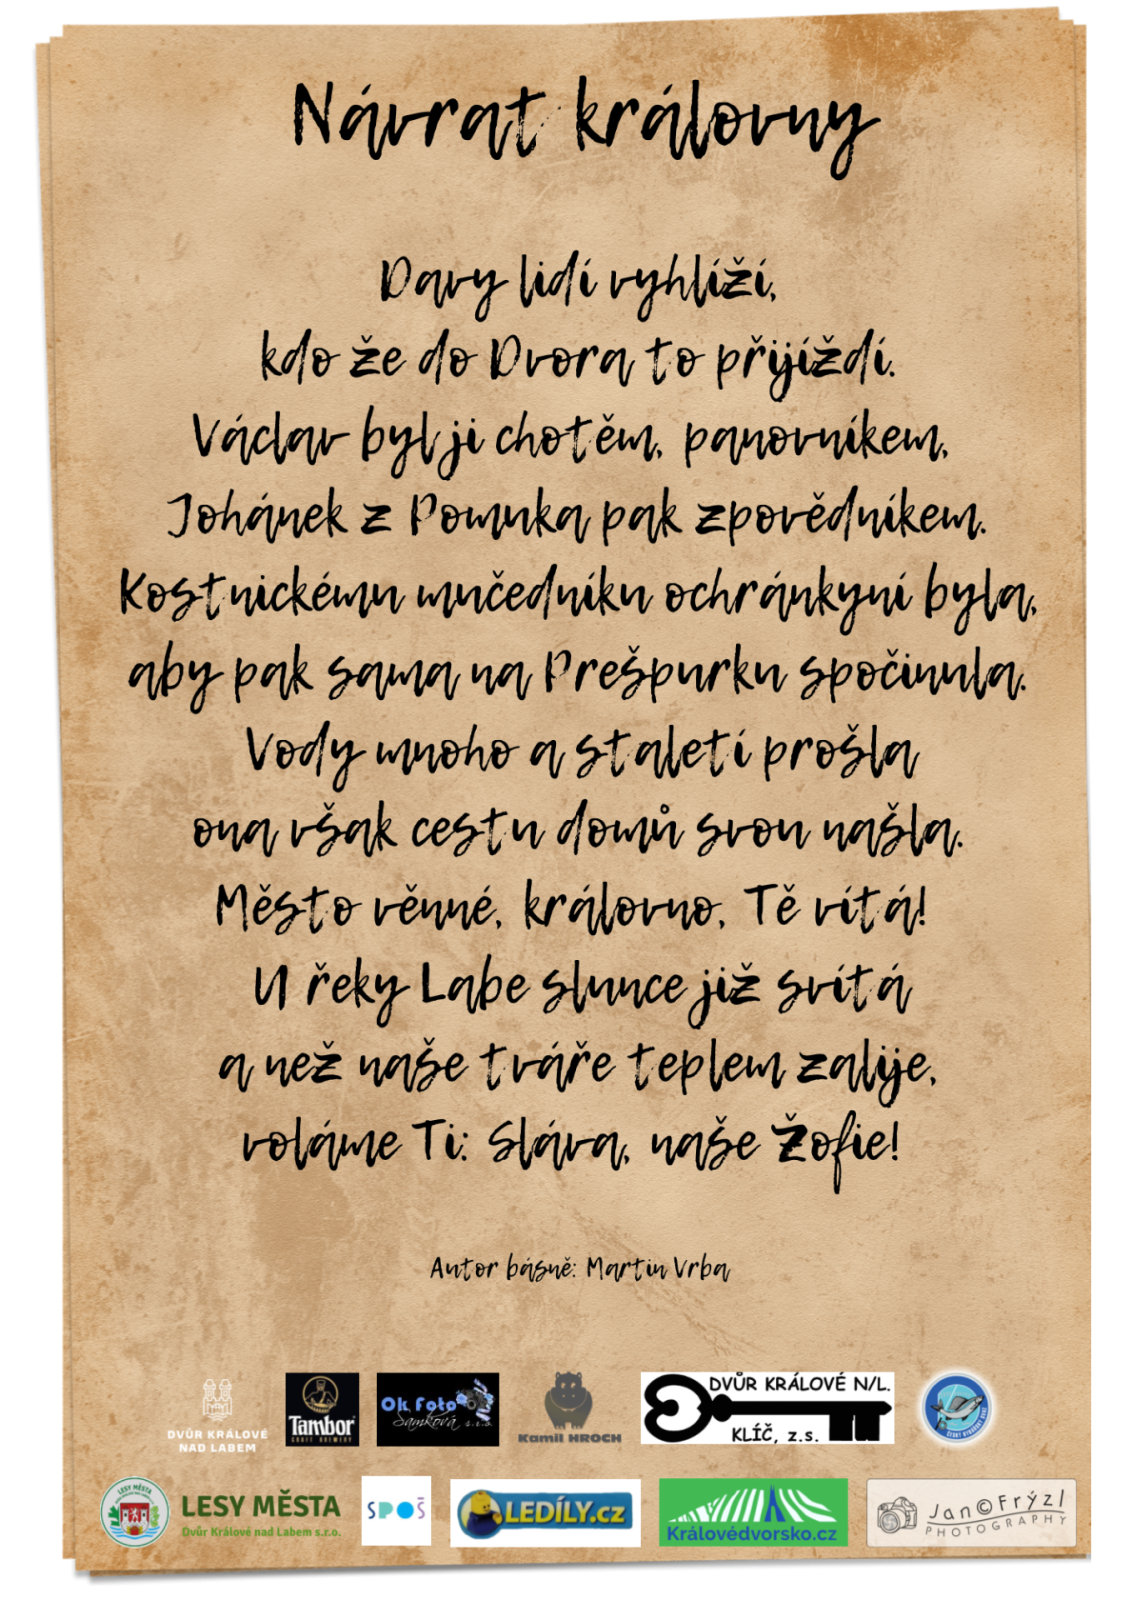 Návrat královny
Davy lidí vyhlíží,
kdo že do Dvora to přijíždí.
Václav byl ji chotěm, panovníkem,
Johánek z Pomuka pak zpovědníkem.
Kostnickému mučedníku ochránkyní byla,
aby pak sama na Prešpurku spočinula.
Vody mnoho a staletí prošla
ona však cestu domů svou našla.
Město věnné, královno, Tě vítá!
U řeky Labe slunce již svítá
a než naše tváře teplem zalije,
voláme Ti: Sláva, naše Žofie!
Autor básně: Martin Vrba
DVŮR KRÁLOVÉ
NAD LABEM
Tambor
CRAFT BREWERY
Ok Foto
Samková s.r.o.
Kamil HROCH
DVŮR KRÁLOVÉ N/L.
KLÍČ, z.s.
ČESKÝ RYBÁŘSKÝ SVAZ
LESY MĚSTA
LESY MĚSTA
Dvůr Králové nad Labem s.r.o.
SPOŠ
LEDÍLY.cz
Královédvorsko.cz
Jan©Frýzl
PHOTOGRAPHY